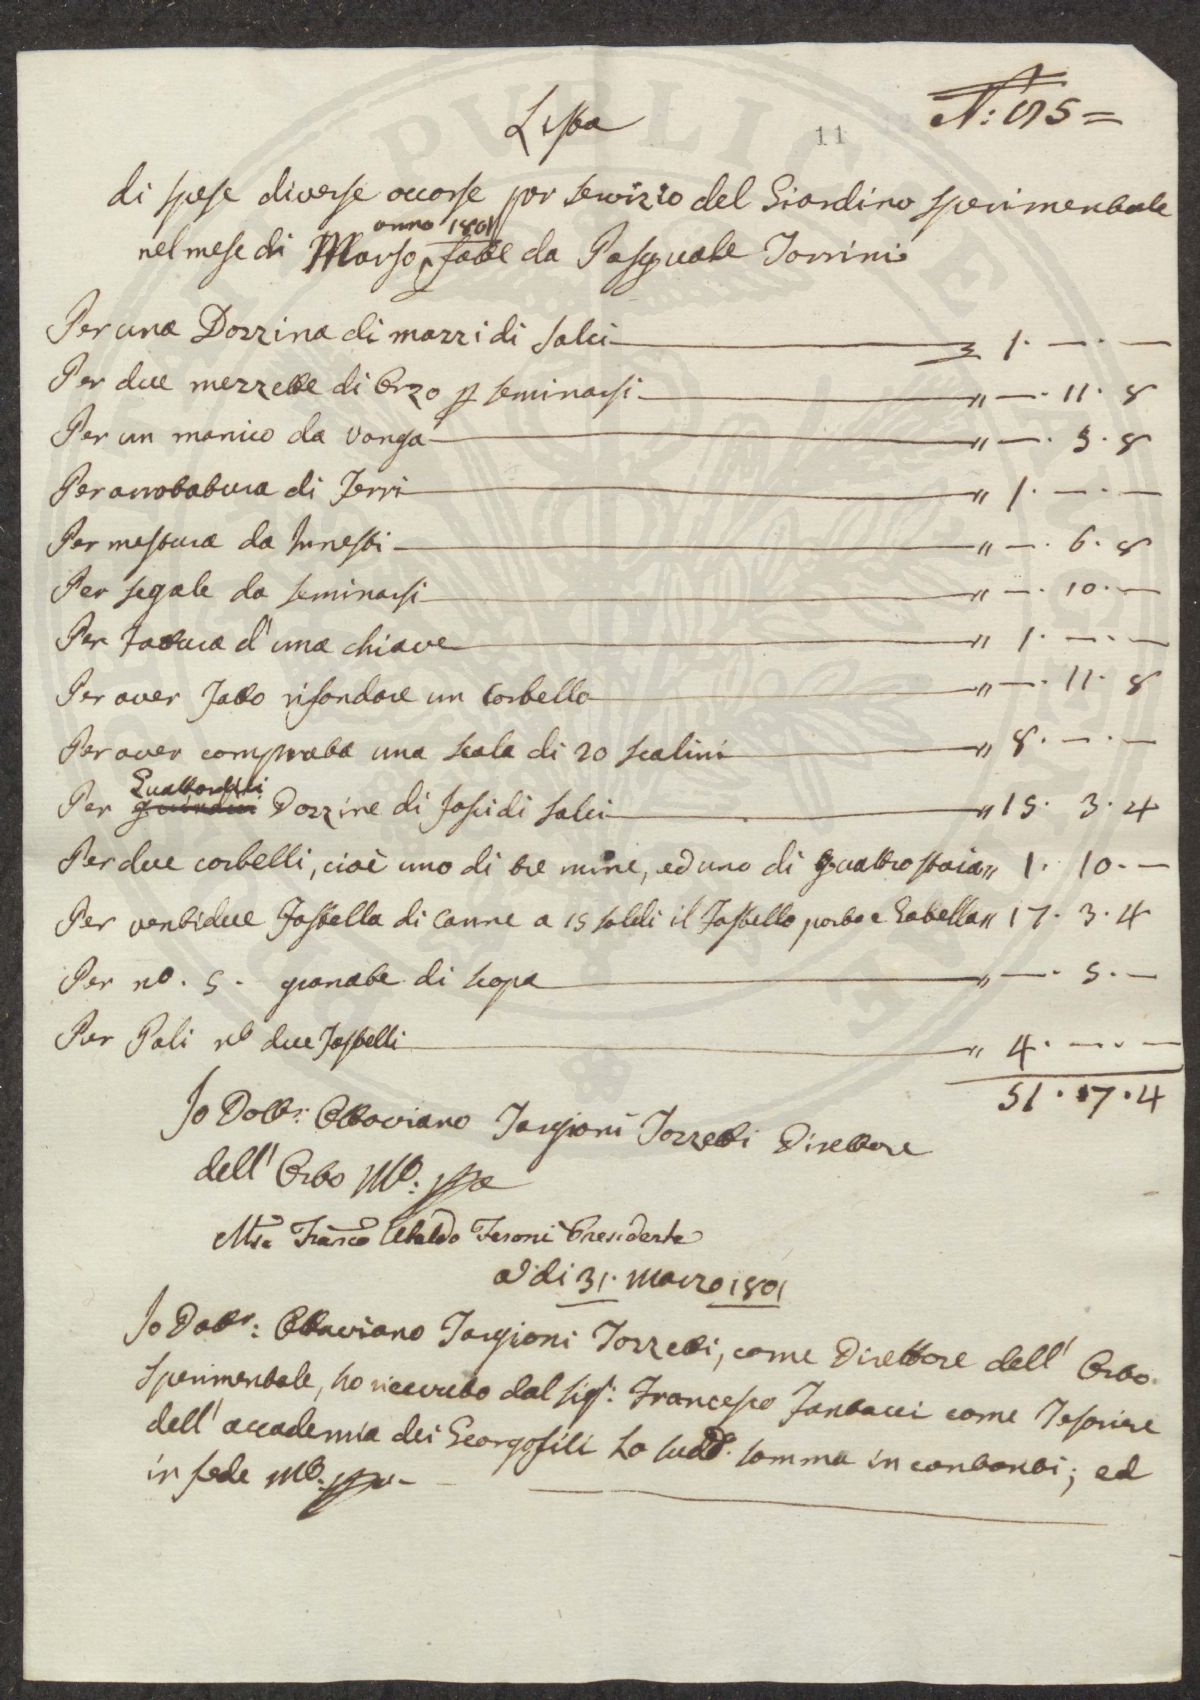 N: 195=
11
Lista
di spese diverse occorse per servizio del Giardino sperimentale
anno 1801
nel mese di Marzo, fatte da Pasquale Torrini
Per una Dozzina di mazzi di salci ——— £ 1. —. —
Per due mezzette di Orzo p seminarsi ——— " —. 11. 8
Per un manico da vanga ——— " —. 5. 8
Per arrotatura di ferri ——— " 1. —. —
Per mestura da Innesti ——— " —. 6. 8
Per segale da seminarsi ——— " —. 10. —
Per fattura d'una chiave ——— " 1. —. —
Per aver fatto rifondare un Corbello ——— " —. 11. 8
Per aver comprata una scala di 20 scalini ——— " 8. —. —
Quattordici
Per Dozzine di fasci di salci ——— " 15. 3. 4
Per due corbelli, cioè uno di tre mine, ed uno di quattro staia " 1. 10. —
Per ventidue Fastella di Canne a 15 soldi il Fastello, porto e Gabella " 17. 3. 4
Per no. 5. granate di scopa ——— " —. 5. —
Per Pali no due Fastelli ——— " 4. —. —
51. 17. 4
Io Dottr: Ottaviano Targioni Tozzetti Direttore
dell' Orto Mo: ppa
Franco Ubaldo Feroni Presidente
A dì 31. Marzo 1801
Io Dottr: Ottaviano Targioni Tozzetti, come Direttore dell' Orto
sperimentale, ho ricevuto dal sigr: Francesco Fantacci come Tesoriere
dell' accademia dei Georgofili la sudda. somma in contanti; ed
in fede mo: ppa